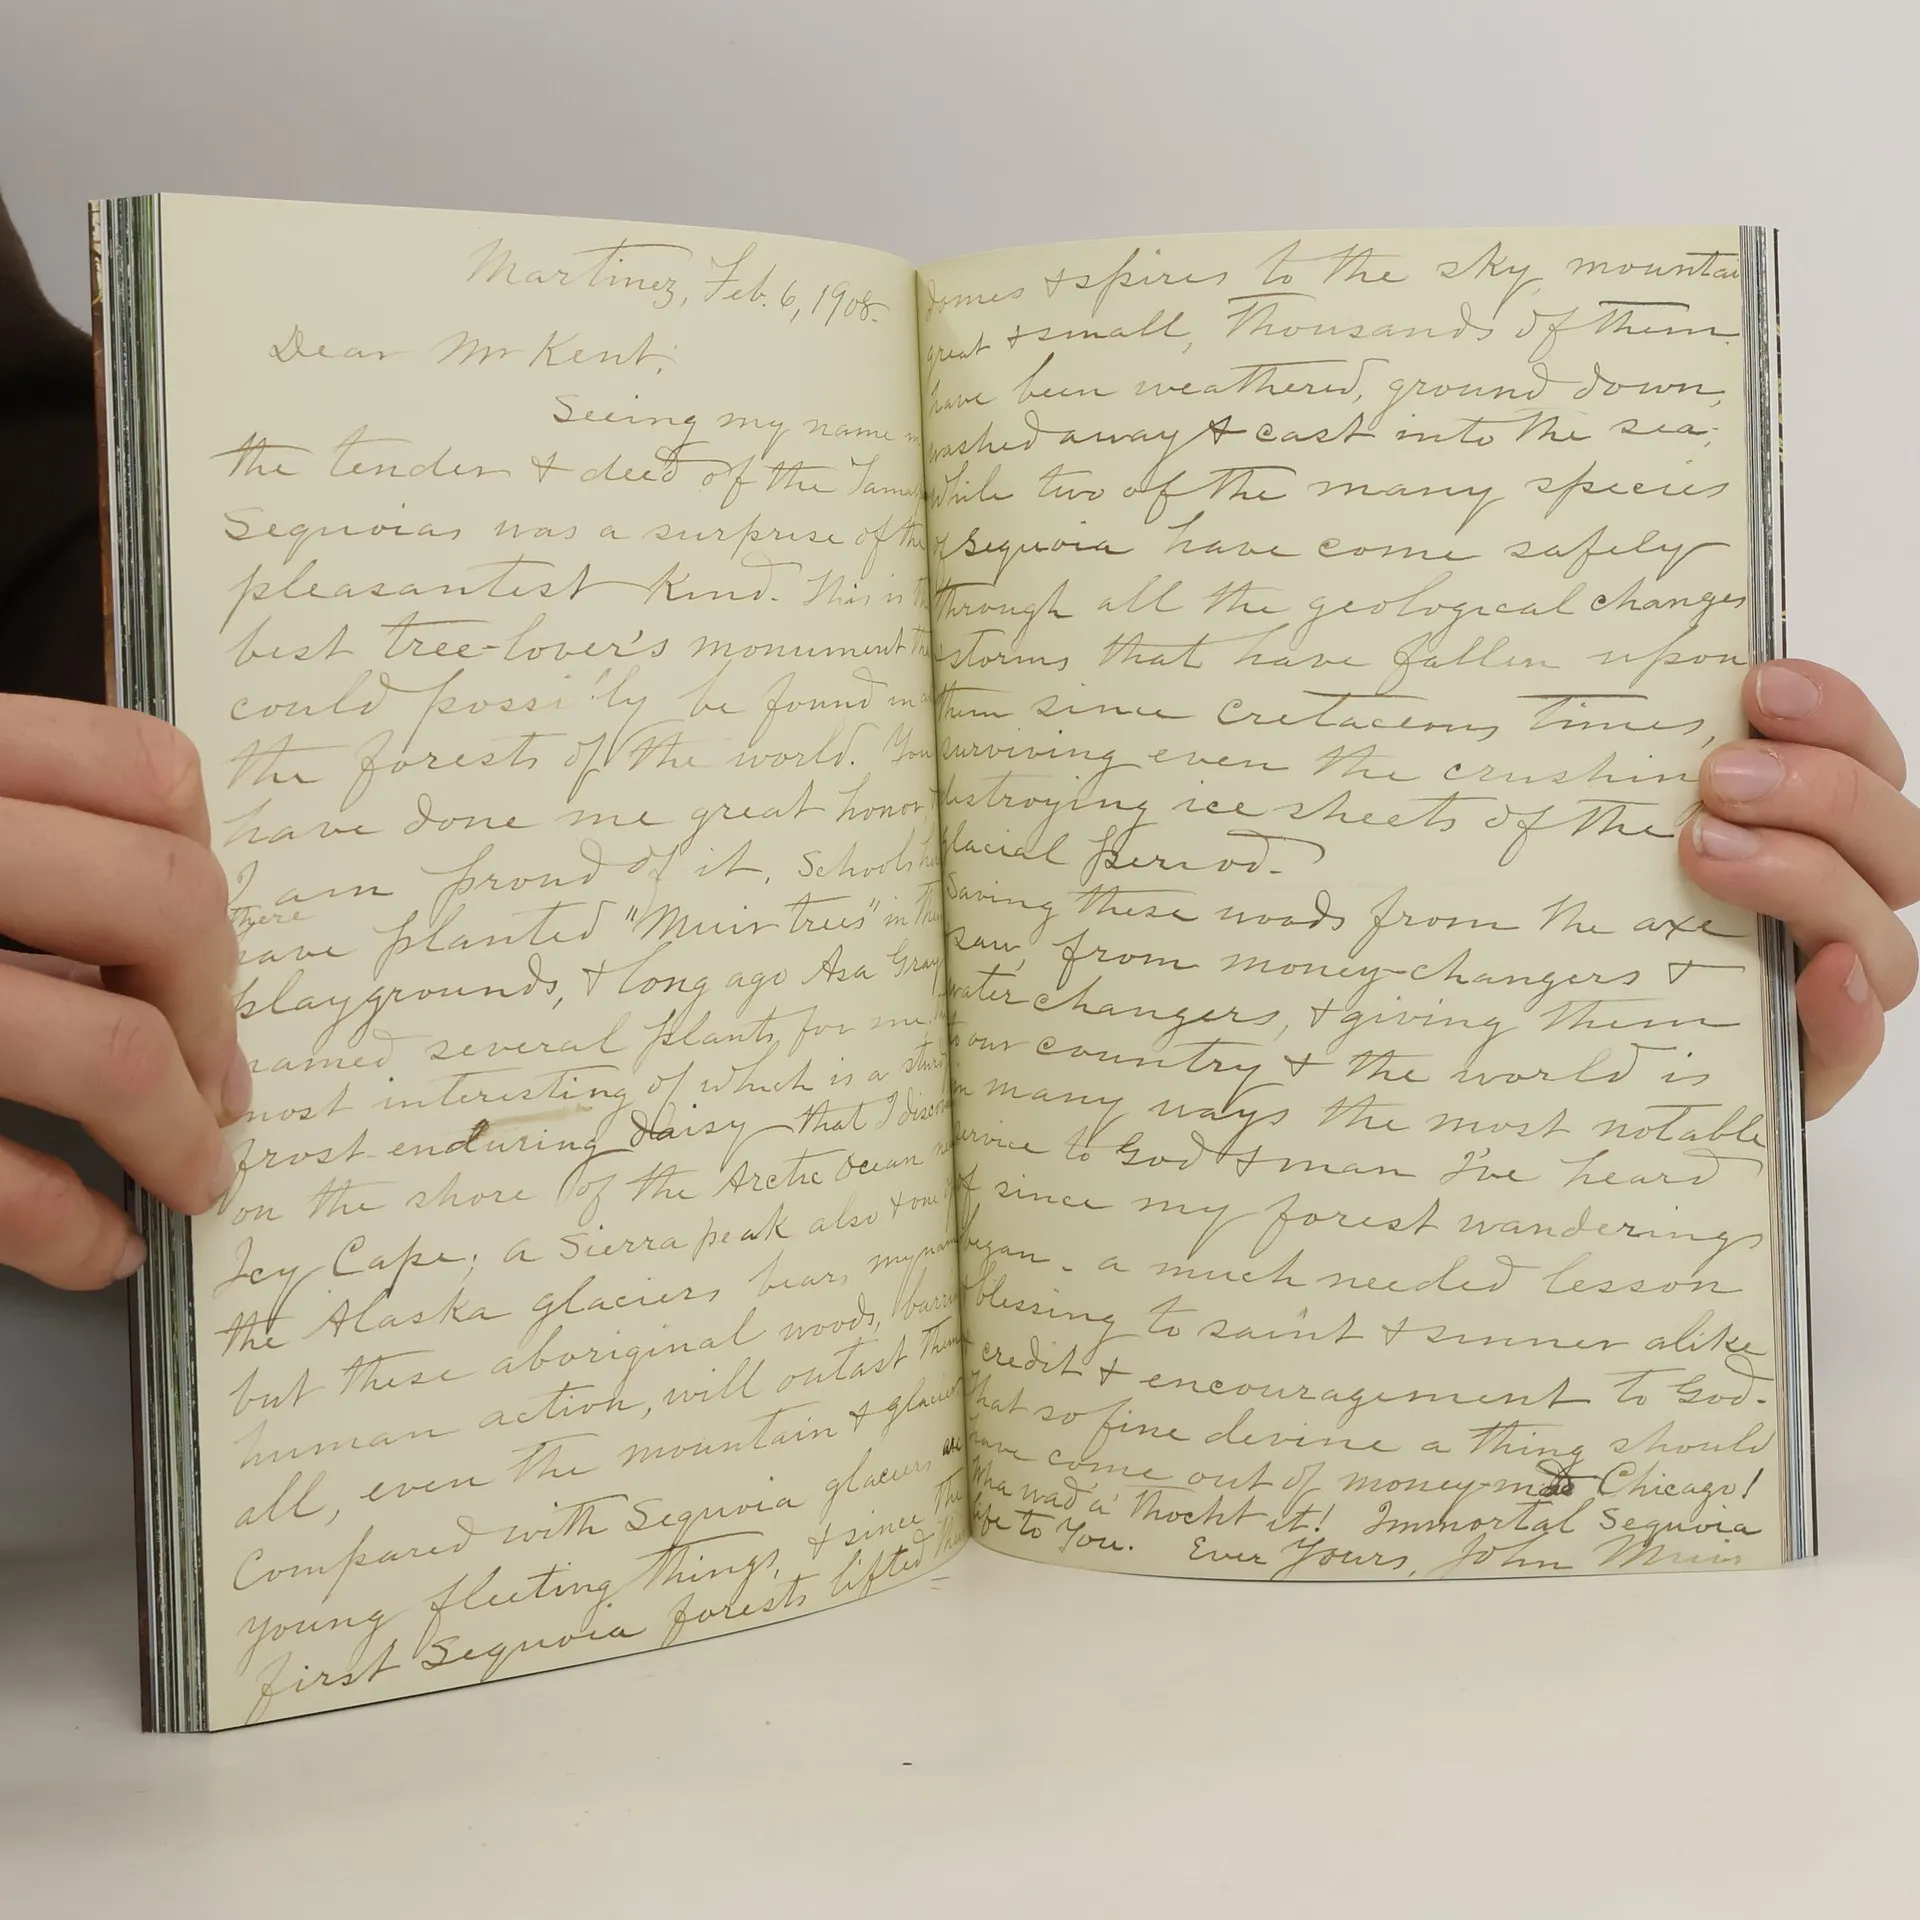 Martinez, Feb. 6, 1908.
Dear Mr Kent:
Seeing my name in
the tender & deed of the Tamal
Sequoias was a surprise of the
pleasantest kind. This is the
best tree-lover's monument that
could possibly be found in all
the forests of the world. You
have done me great honor, &
I am proud of it. Schools here &
there
have planted "Muir trees" in their
playgrounds, & long ago Asa Gray
named several plants for me, the
most interesting of which is a sturdy
frost-enduring daisy that I discovered
on the shore of the Arctic Ocean near
Icy Cape; a Sierra peak also & one of
the Alaska glaciers bears my name,
but these aboriginal woods, barring
human action, will outlast them
all, even the mountain & glacier.
Compared with Sequoia glaciers are
young fleeting things, & since the
first Sequoia forests lifted their
domes & spires to the sky, mountai
great & small, thousands of them.
have been weathered, ground down,
washed away & cast into the sea;
while two of the many species
of Sequoia have come safely
through all the geological changes
& storms that have fallen upon
them since cretaceous times,
surviving even the crushin
destroying ice sheets of the
glacial period.
Saving these woods from the axe
saw, from money-changers &
water-changers, & giving them
to our country & the world is
in many ways the most notable
service to God & man I've heard
of since my forest wanderings
began - a much needed lesson
blessing to saint & sinner alike
& credit & encouragement to God.
That so fine devine a thing should
have come out of money-mad Chicago!
Wha wad'a' thocht it! Immortal Sequoia
life to You. Ever Yours, John Muir